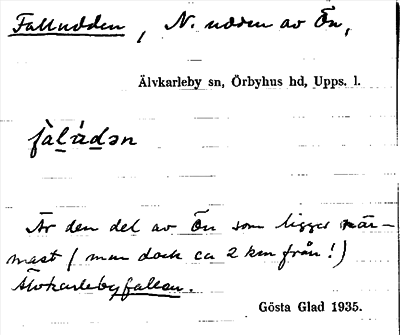 Falludden, N. udden av Ön,
Älvkarleby sn, Örbyhus hd, Upps. l.
fàl̲ád̲ən
Är den del av Ön som ligger när-
mast (man dock ca 2 km från!)
Älvkarlebyfallen.
Gösta Glad 1935.